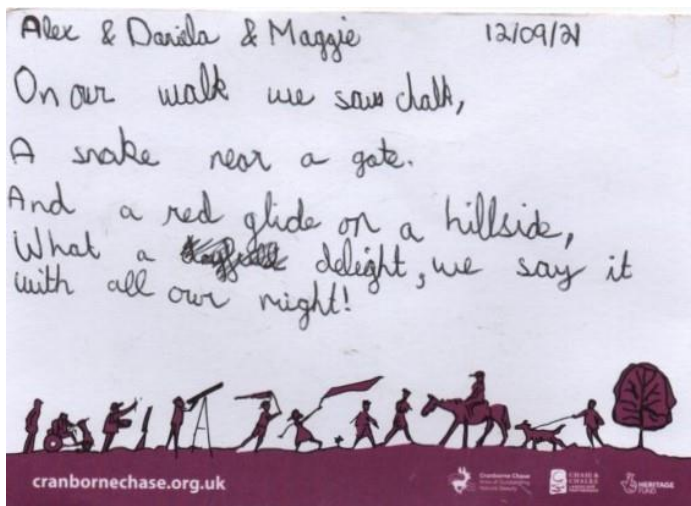 Alex & Daniela & Maggie 12/09/21
On our walk we saw chalk,
A snake near a gate.
And a red glide on a hillside,
What a delight, we say it
with all our might!
cranbornechase.org.uk
Cranborne Chase
Area of Outstanding
Natural Beauty
CHASE &
CHALKE
LANDSCAPE
PARTNERSHIP
HERITAGE
FUND